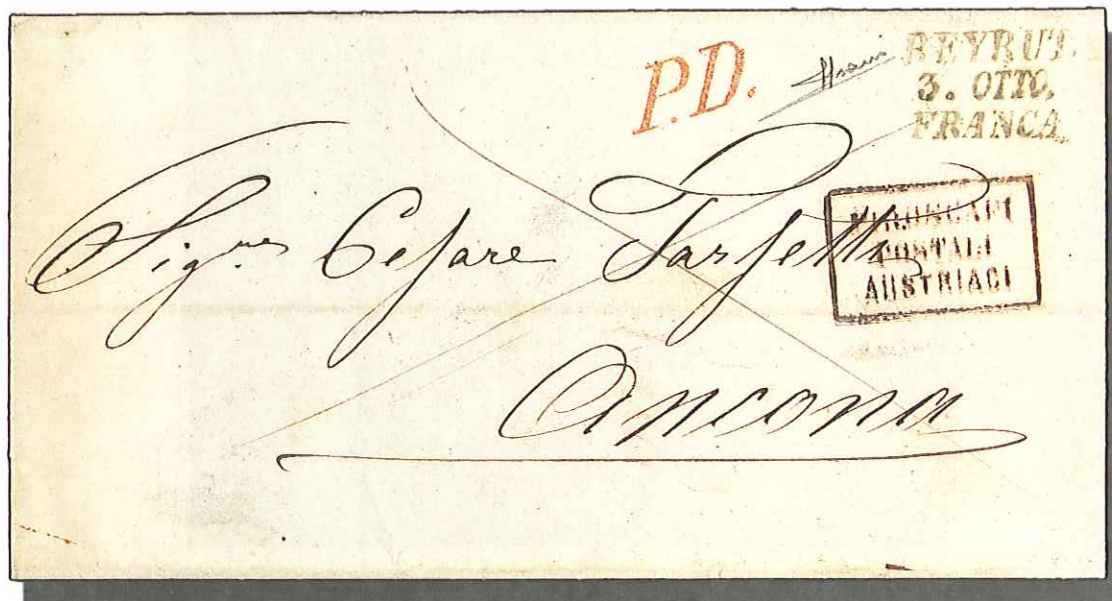 P.D.
BEYRUT.
3. OTTO.
FRANCA.
PIROSCAFI
POSTALI
AUSTRIACI
Sig.re Cesare
Ancona